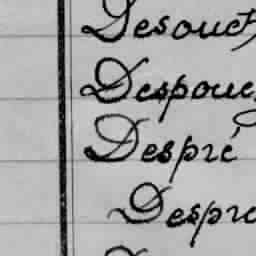 Desouch
Despoue
Despré
Despre